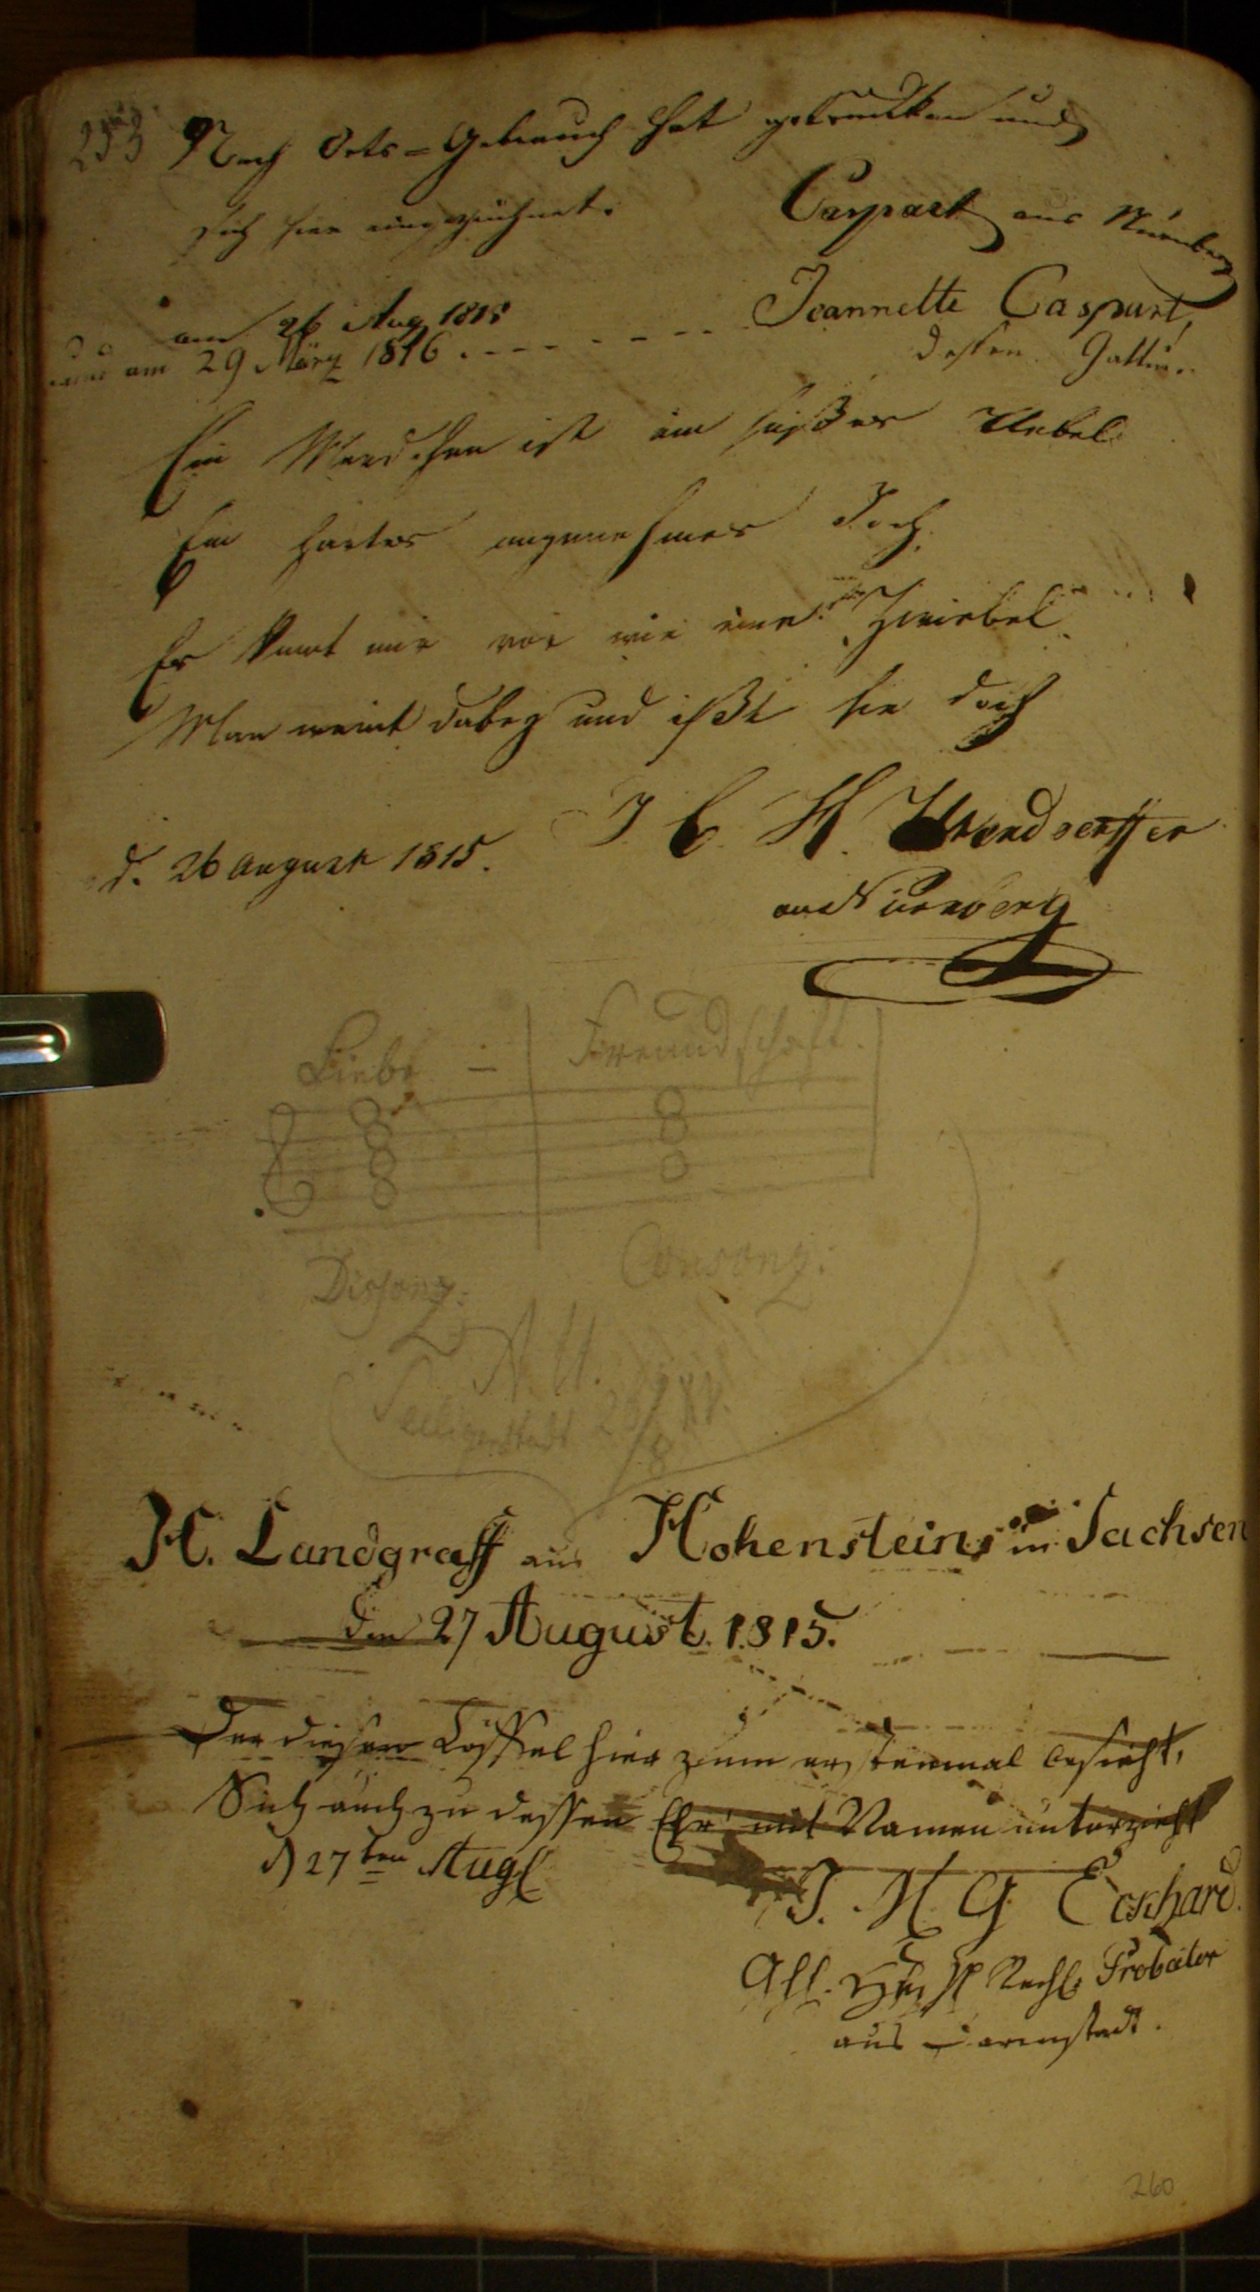 253 Nach Orts=Gebrauch hat getrunken und
sich hier eingezeichnet. Caspart aus Nürnberg
am 26 Aug 1815
und am 29 März 1816 . - - - - - - - Jeannette Caspart,
dessen Gattin.
Ein Maedchen ist ein süßes Uebel
Ein hartes angenehmes Joch.
Es komt mir vor wie eine Zwiebel
Man weint dabey und ißt sie doch
d. 26 August 1815. J C H
aus Nürnberg
Liebe = Freundschaft.
Dissonz: Consonz:
H. Landgraff aus Hohenstein in Sachsen
den 27 August. 1815.
Der diesen Löffel hier zum erstenmal besieht,
Sich auch zu dessen Ehr' mit Namen unterzieht
d 27ten Aug
J. H. G. Eckhard.
Probator
aus Darmstadt.
260